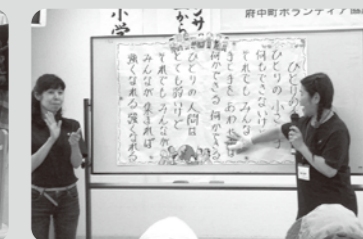 府中町ボランティア協
ンサ
から
小学
ひとりの
ひとりの小さ
何もできないけ
それでもみんな
手と手をあわ
何かできる 何かできる
ひとりの人間は
とても弱いけど
それでもみんなが
みんなが集まれば
強くなれる 強くなれる